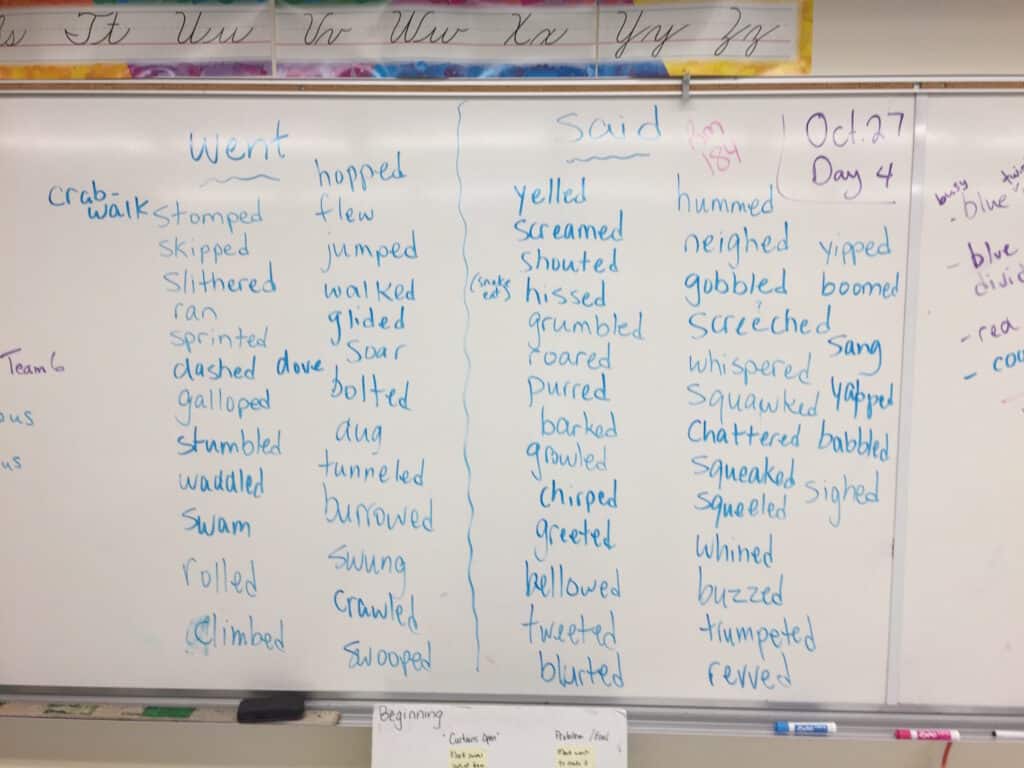 Tt Uu Vv Ww Xx Yy Zz
Went
crab-
walk
stomped
skipped
slithered
ran
sprinted
dashed
galloped
stumbled
waddled
swam
rolled
climbed
hopped
flew
jumped
walked
glided
soar
dove
bolted
dug
tunneled
burrowed
swung
crawled
swooped
Said
yelled
screamed
shouted
hissed
grumbled
roared
purred
barked
growled
chirped
greeted
bellowed
tweeted
blurted
hummed
neighed
gobbled
screeched
whispered
squawked
chattered
squeaked
squeeled
whined
buzzed
trumpeted
revved
yipped
boomed
sang
yapped
babbled
sighed
Rm
184
Oct. 27
Day 4
busy
- blue
- blue
- rea
Team 6
ous
us
Beginning
"Curtains Open"
Problem /